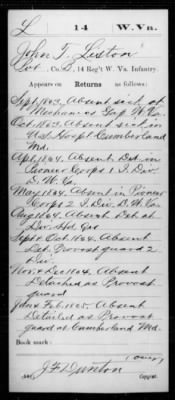 L 14 W. Va.
John T. Liston
Co. , 14 Reg't W. Va. Infantry.
Appears on
Returns as follows:
Sept. 1863, Absent sick at
Mechanics Gap W. Va.
Oct. 1863 Absent sick in
U.S. Hospt Cumberland
Md.
Apl. 1864. Absent Det in
Pioneer Corps 1 Div.
D. W. Va.
May 1864. Absent in Pioneer
Corps 2 I. Div. D. W. Va.
Aug 1864. Absent Det at
Div. Hd. Qrs
Sept & Oct. 1864. Absent
Det. Provost guard 2
Div.
Nov. & Dec 1864. Absent
Detached as Provost
guard
Jan & Feb. 1865. Absent
Detailed as Provost
guard at Cumberland Md.
Book mark:
J. F. Dunton
Copyist.